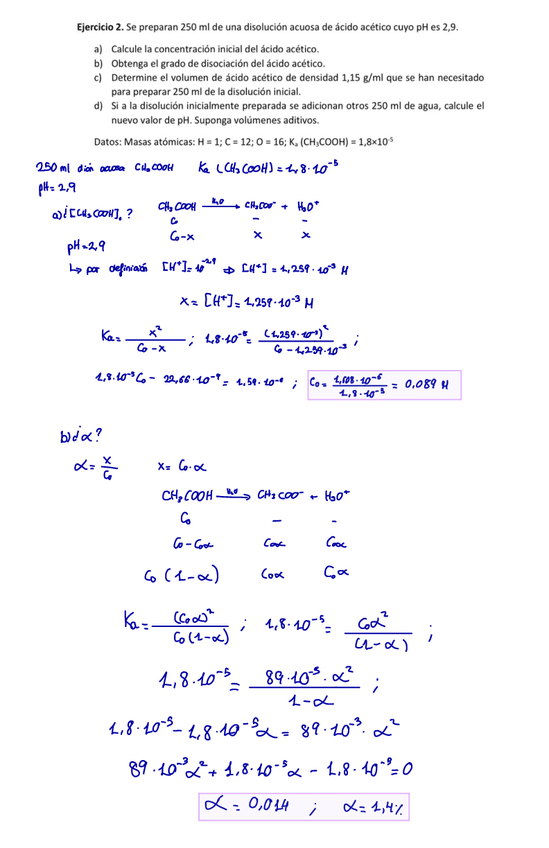 Ejercicio 2. Se preparan 250 ml de una disolución acuosa de ácido acético cuyo pH es 2,9.
a) Calcule la concentración inicial del ácido acético.
b) Obtenga el grado de disociación del ácido acético.
c) Determine el volumen de ácido acético de densidad 1,15 g/ml que se han necesitado
para preparar 250 ml de la disolución inicial.
d) Si a la disolución inicialmente preparada se adicionan otros 250 ml de agua, calcule el
nuevo valor de pH. Suponga volúmenes aditivos.
Datos: Masas atómicas: H = 1; C = 12; O = 16; Kₐ (CH₃COOH) = 1,8×10⁻⁵
250 ml dión acuosa CH₃COOH Ka (CH₃COOH) = 1,8·10⁻⁵
pH = 2,9
a) ¿[CH₃COOH]₀? CH₃COOH —H₂O→ CH₃COO⁻ + H₃O⁺
C₀ – –
C₀-x x x
pH=2,9
↳ por definición [H⁺] = 10⁻²·⁹ ⇒ [H⁺] = 1,259·10⁻³ M
x = [H⁺] = 1,259·10⁻³ M
Ka = x² / (C₀ - x) ; 1,8·10⁻⁵ = (1,259·10⁻³)² / (C₀ - 1,259·10⁻³) ;
1,8·10⁻⁵C₀ - 22,66·10⁻⁹ = 1,59·10⁻⁶ ; C₀ = 1,608·10⁻⁶ / 1,8·10⁻⁵ = 0,089 M
b) ¿α?
α = x / C₀ x = C₀·α
CH₃COOH —H₂O→ CH₃COO⁻ + H₃O⁺
C₀ – –
C₀-C₀α C₀α C₀α
C₀(1-α) C₀α C₀α
Ka = (C₀α)² / C₀(1-α) ; 1,8·10⁻⁵ = C₀α² / (1-α) ;
1,8·10⁻⁵ = 89·10⁻³·α² / 1-α ;
1,8·10⁻⁵ - 1,8·10⁻⁵α = 89·10⁻³·α²
89·10⁻³α² + 1,8·10⁻⁵α - 1,8·10⁻⁵ = 0
α = 0,014 ; α = 1,4%